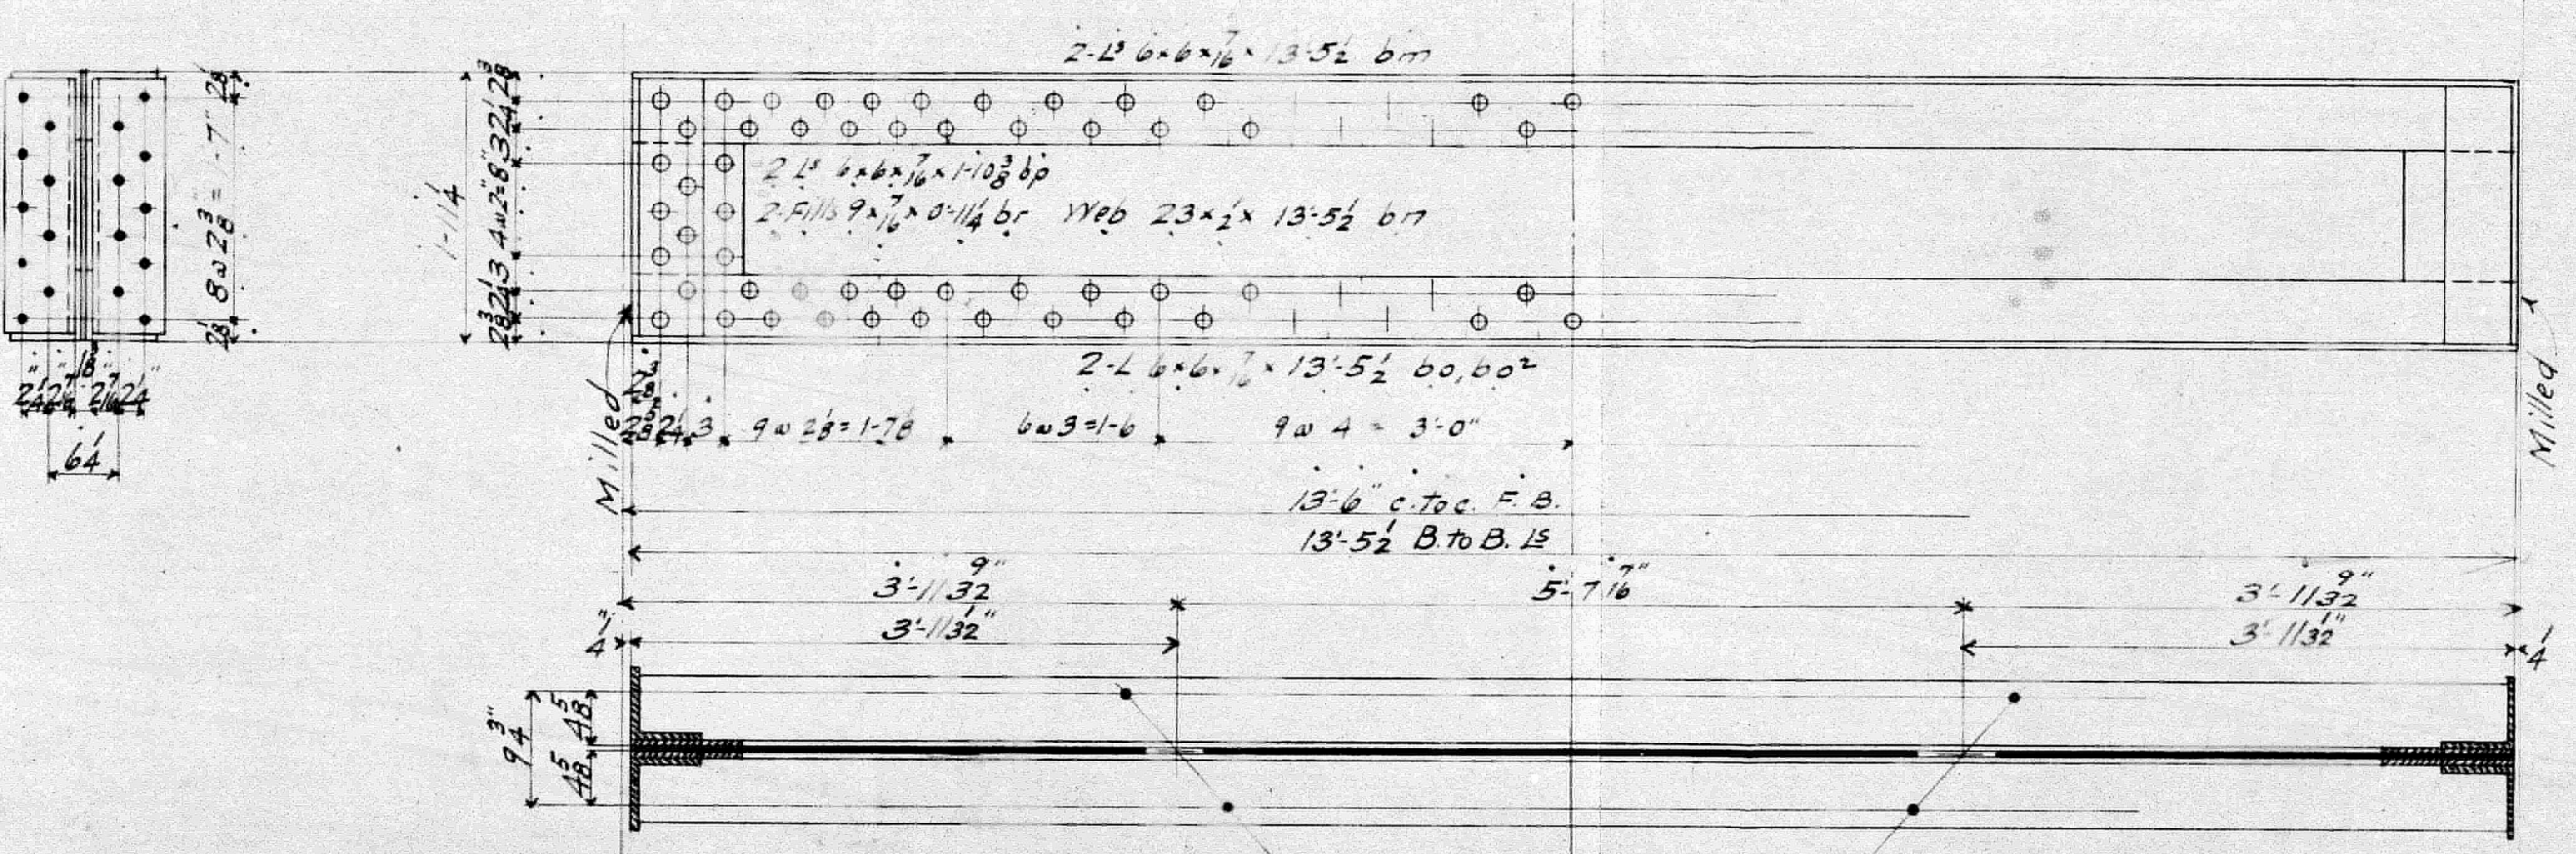 2-Ls 6×6×7/16×13'-5 1/2 bm
2 1/8
8 @ 2 3/8 = 1'-7"
2 1/8
1'-11 1/4
2 3/8 2 1/4 3 4 @ 2" = 8" 3 2 1/4 2 3/8
2 Ls 6×6×7/16×1-10 3/8 bp
2-Fills 9×7/16×0-11 1/4 br Web 23×1/2× 13'-5 1/2 bn
2-L 6×6×7/16× 13'-5 1/2 bo, bo²
1/8
2 1/4 2 7/16 2 7/16 2 1/4
6 1/4
Milled
Milled
2 5/8 2 1/4 3 9 @ 2 1/8 = 1-7 1/8 6 @ 3 = 1-6 9 @ 4 = 3'-0"
13'-6" c. to c. F. B.
13'-5 1/2 B. to B. Ls
3'-11 9/32" 5'-7 7/16" 3'-11 9/32"
1/4" 3'-11 1/32" 3'-11 1/32" 1/4
9 3/4"
4 5/8
4 5/8